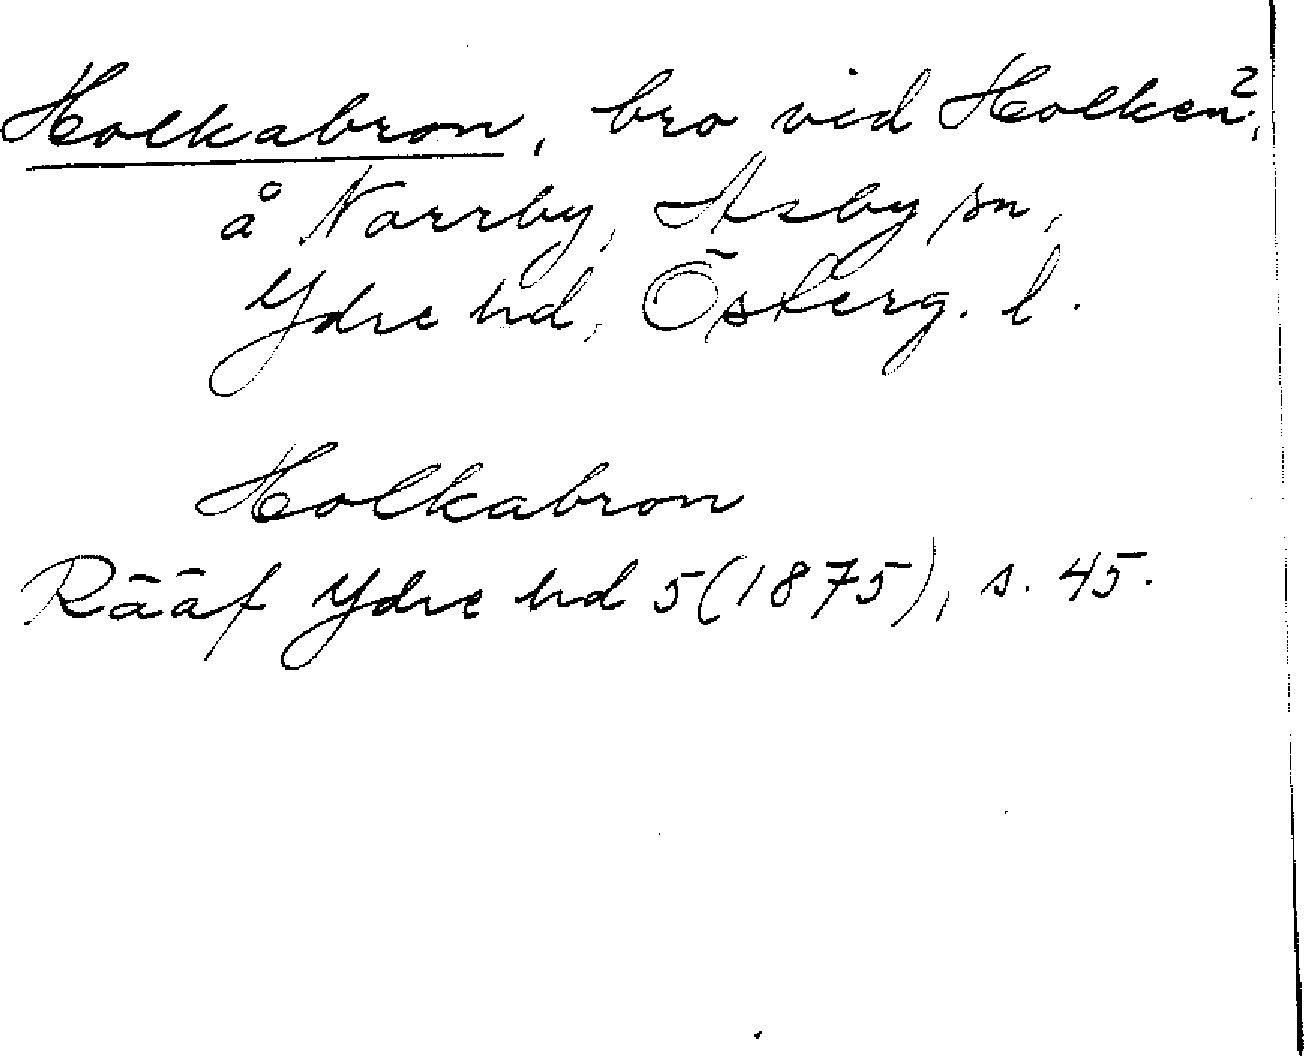 Holkabron, bro vid Holken²,
å Norrby, Asby sn,
Ydre hd, Österg. l.
Holkabron
Rääf Ydre hd 5 (1875), s. 45.